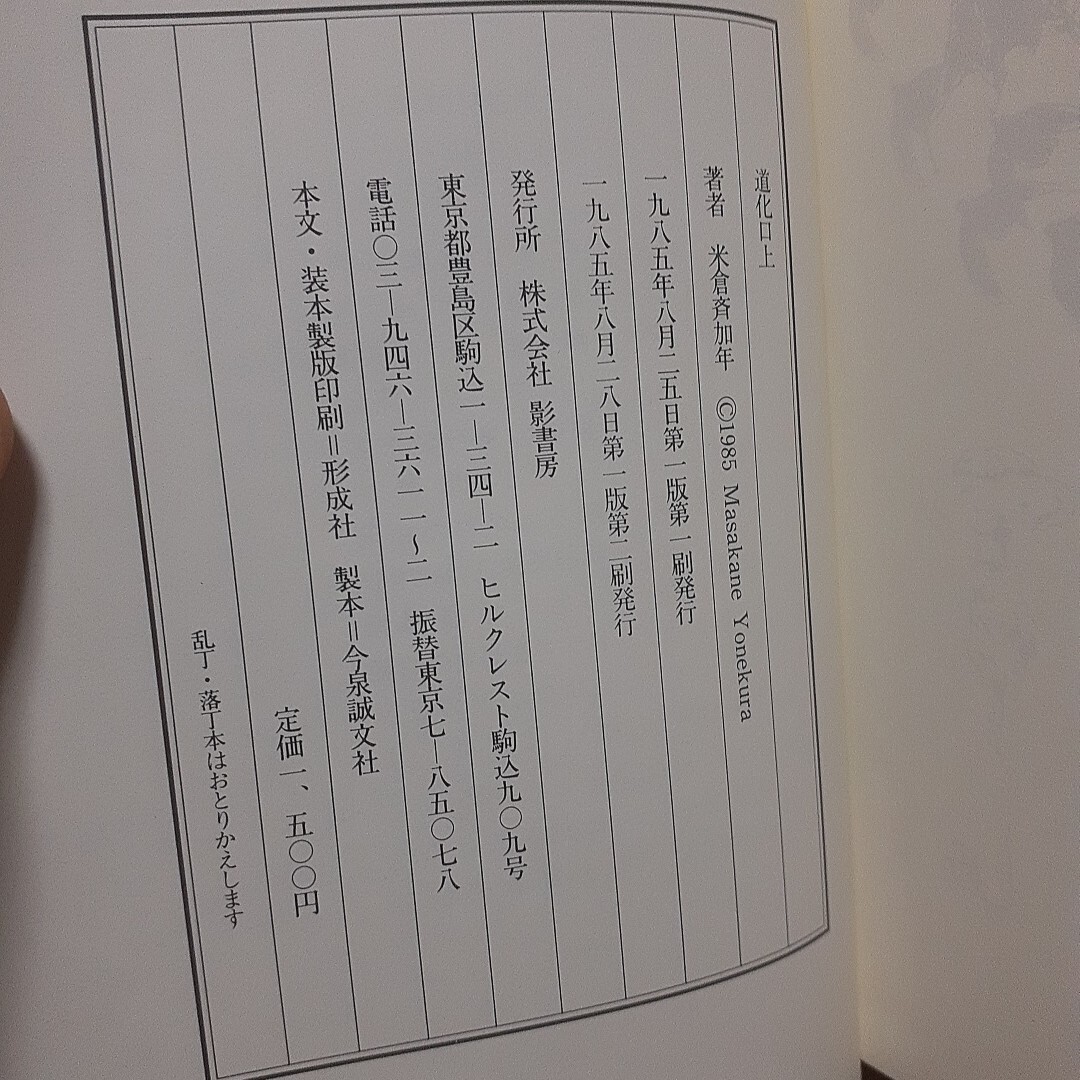 道化口上
著者　米倉斉加年　©1985 Masakane Yonekura
一九八五年八月二五日第一版第一刷発行
一九八五年八月二八日第一版第二刷発行
発行所　株式会社 影書房
東京都豊島区駒込一―三四―二　ヒルクレスト駒込九〇九号
電話〇三―九四六―三六一一～二　振替東京七―八五〇七八
本文・装本製版印刷＝形成社　製本＝今泉誠文社
定価一、五〇〇円
乱丁・落丁本はおとりかえします